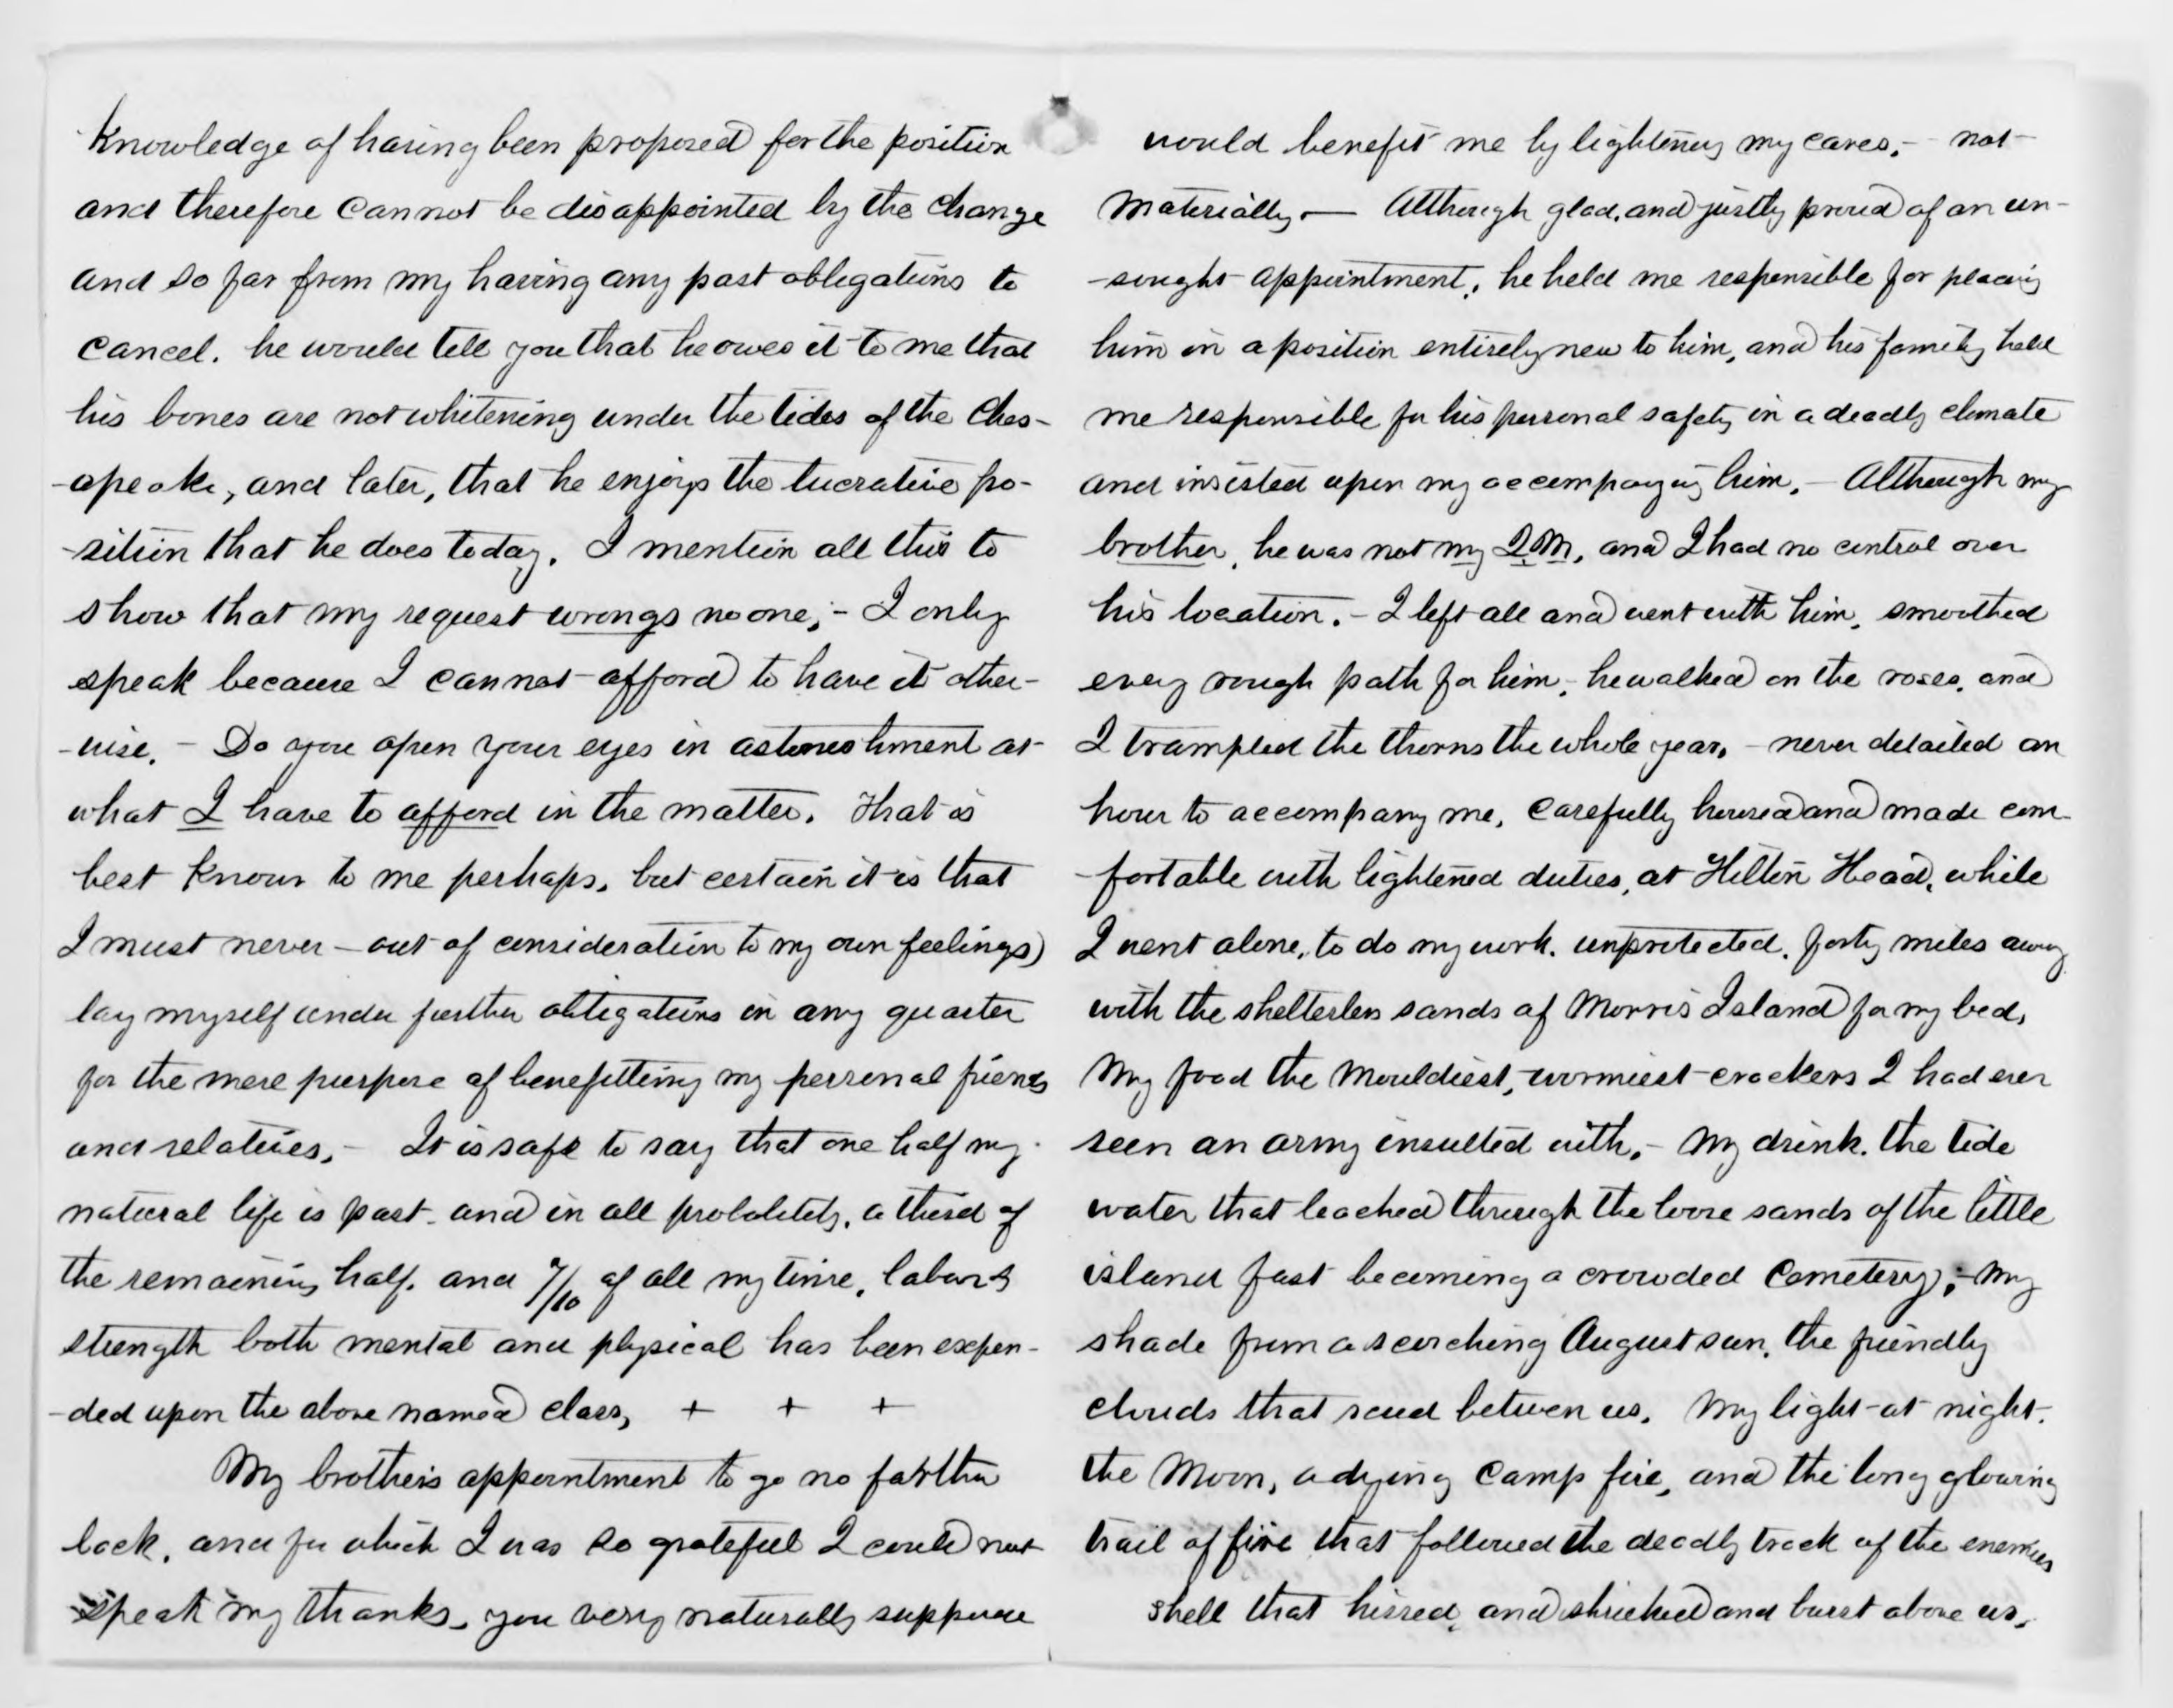 knowledge of having been proposed for the position
and therefore cannot be disappointed by the change
and so far from my having any past obligations to
cancel. he would tell you that he owes it to me that
his bones are not whitening under the tides of the Ches-
-apeake, and later, that he enjoys the lucrative po-
-sition that he does today. I mention all this to
show that my request wrongs no one,- I only
speak because I cannot afford to have it other-
-wise. - Do you open your eyes in astonishment at
what I have to afford in the matter. That is
best known to me perhaps, but certain it is that
I must never - out of consideration to my own feelings)
lay myself under further obligations in any quarter
for the mere purpose of benefitting my personal friends
and relatives, - It is safe to say that one half my
natural life is past - and in all probability, a third of
the remaining half. and 7/10 of all my time, labor &
strength both mental and physical has been expen-
-ded upon the above named class, + + +
My brother's appointment to go no farther
back, and for which I was so grateful I could not
speak my thanks, you very naturally suppose
would benefit me by lightening my cares, - not
materially, — Although glad, and justly proud of an un-
-sought appointment, he held me responsible for placing
him in a position entirely new to him, and his family held
me responsible for his personal safety in a deadly climate
and insisted upon my accompanying him, - Although my
brother, he was not my Q.M. and I had no control over
his location. - I left all and went with him, smoothed
every rough path for him, - he walked on the roses, and
I trampled the thorns the whole year, - never detailed an
hour to accompany me, carefully housed and made com-
-fortable with lightened duties, at Hilton Head, while
I went alone, to do my work. unprotected. forty miles away
with the shelterless sands of Morris Island for my bed,
My food the mouldiest, wormiest crackers I had ever
seen an army insulted with, - My drink. the tide
water that leached through the loose sands of the little
island fast becoming a crowded cemetery; - my
shade from a scorching August sun, the friendly
clouds that scud between us. My light at night.
the Moon, a dying camp fire, and the long glowing
trail of fire that followed the deadly track of the enemies
shell that hissed, and shrieked and burst above us.